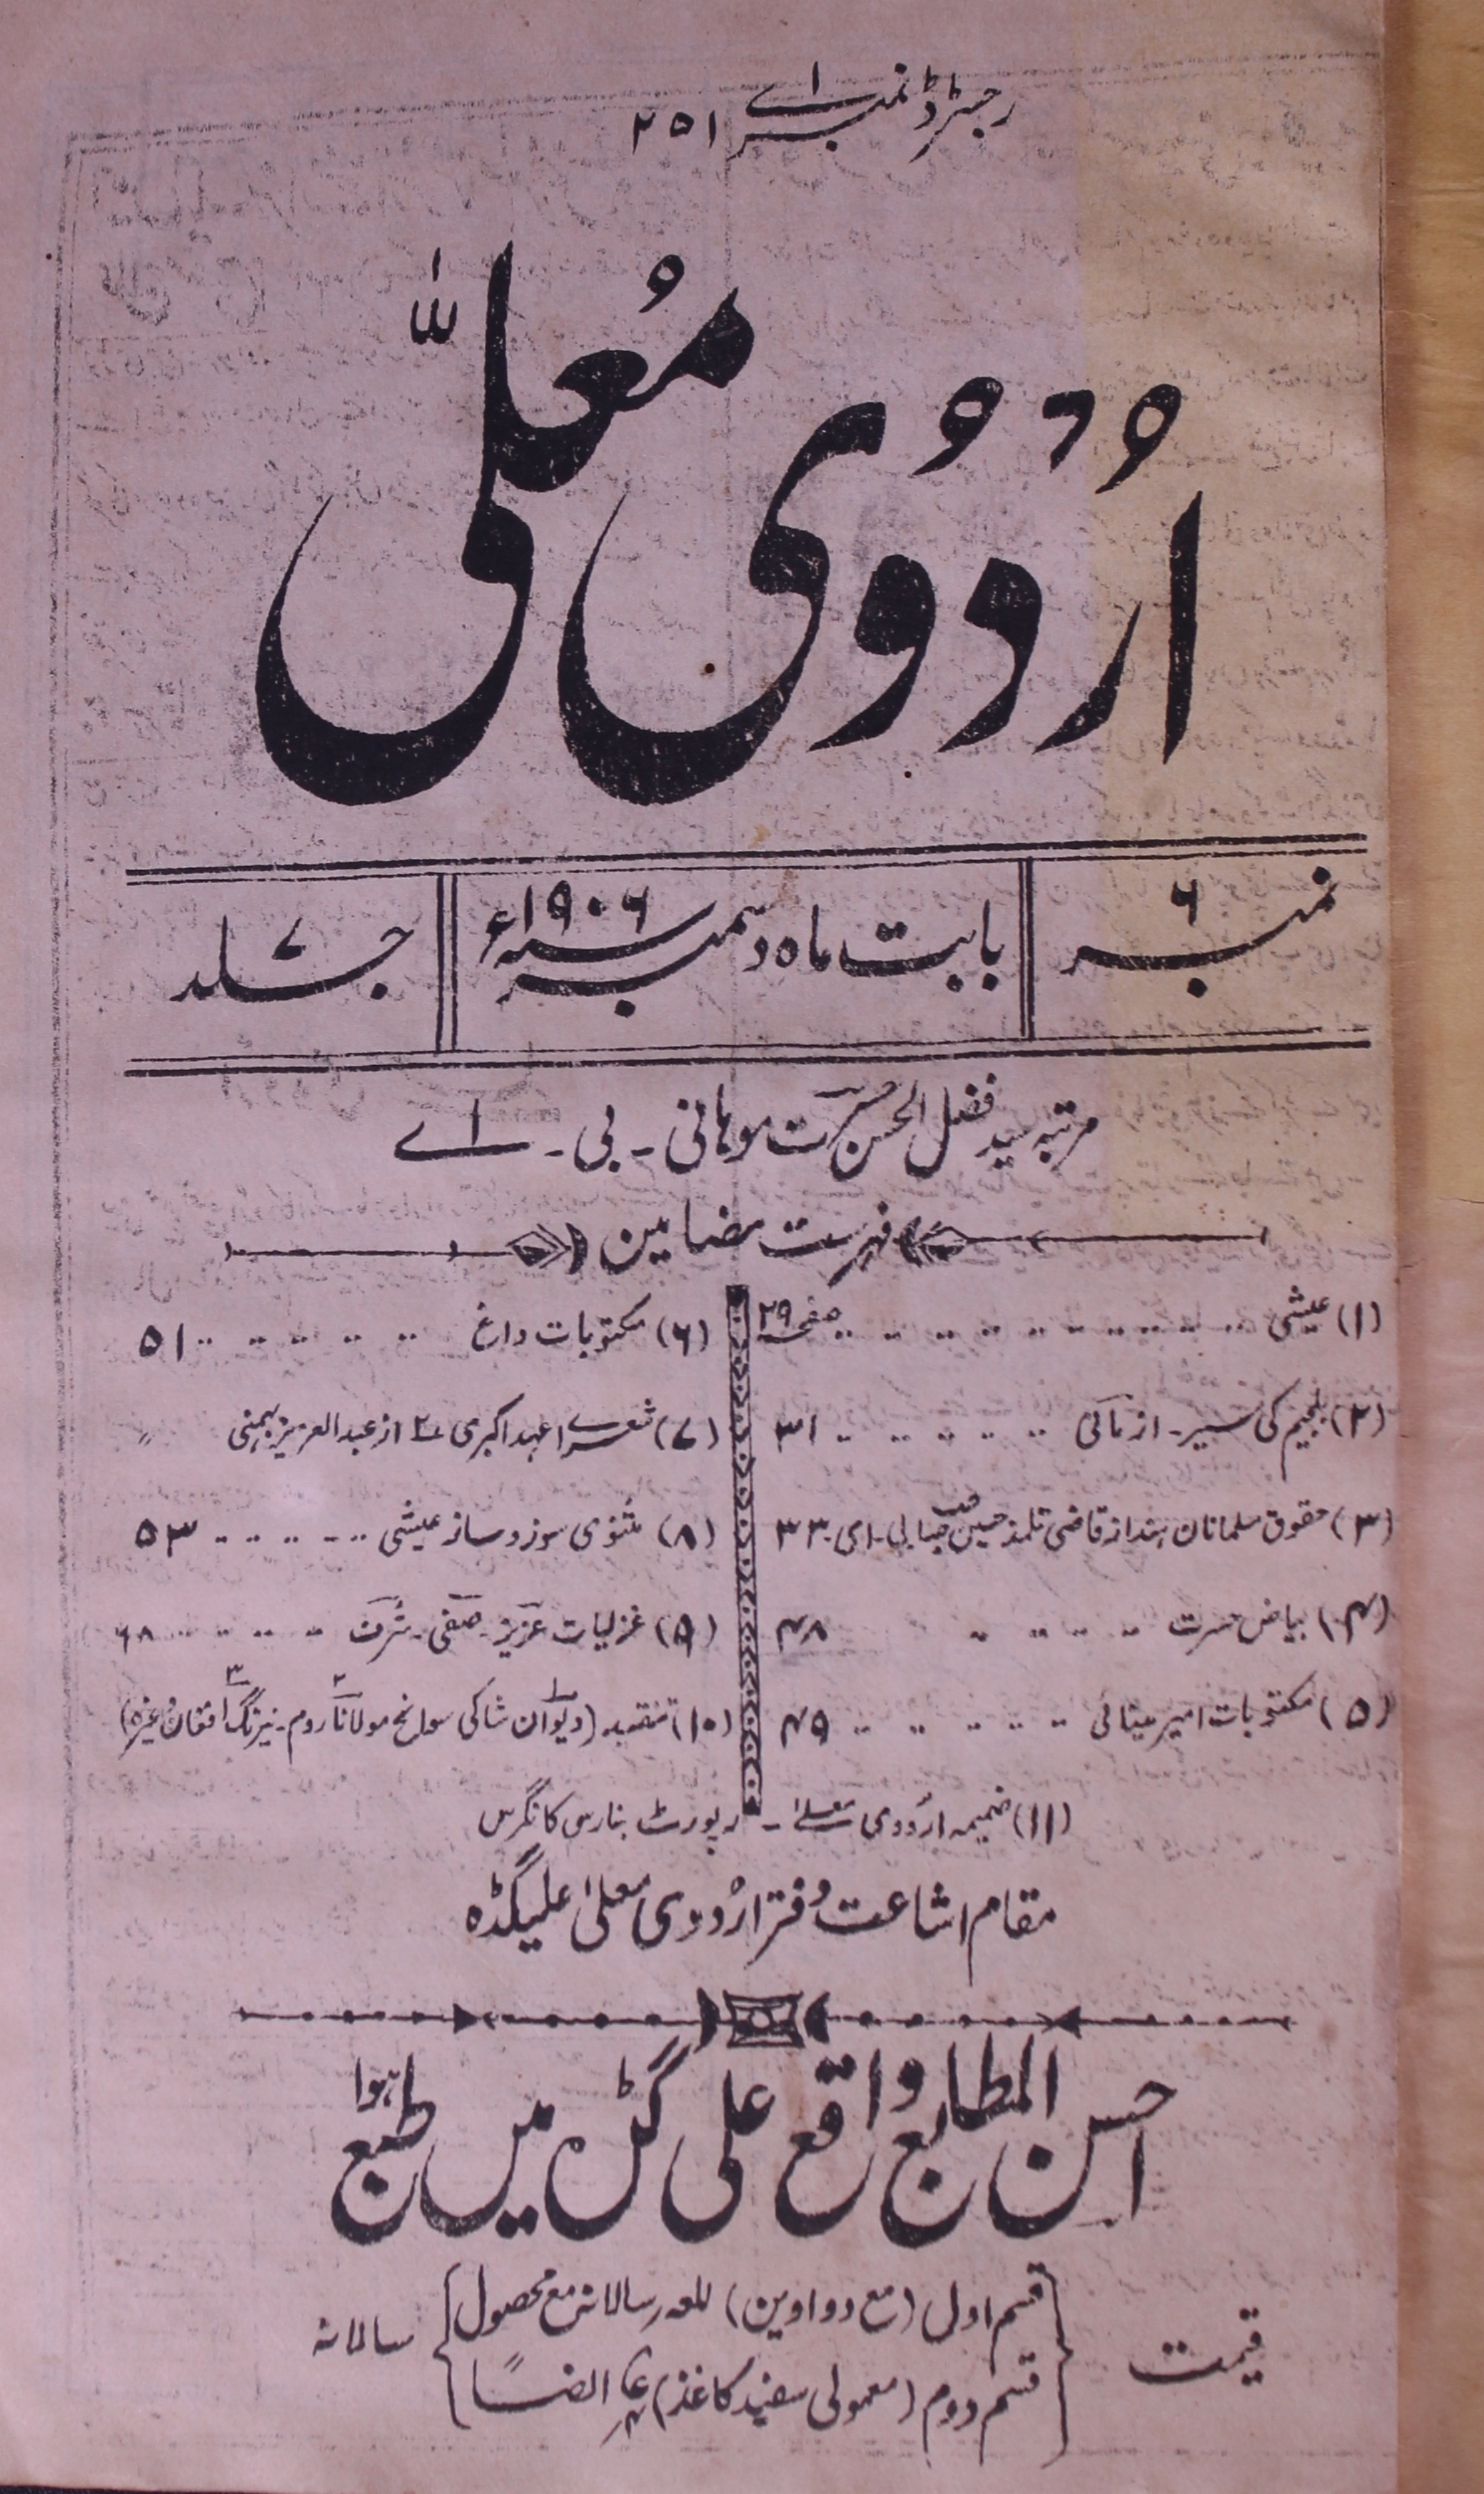 رجسٹرڈ نمبر اے ۲۵۱
اُرْدُوی مُعلّٰی
نمبر ۶
بابت ماہ دسمبر سنہ ۱۹۰۶ء
جلد ۷
مرتبہ سید فضل الحسن حسرت موہانی ۔ بی ۔ اے
فہرست مضامین
(۱) عیشی .. .. .. .. صفحہ ۲۹
(۲) بلجیم کی سیر ۔ از مآلی .. .. .. .. ۳۱
(۳) حقوق مسلمانان ہند از قاضی تلمذ حسین صاحب بی ۔ ای ۳۳
(۴) بیاض حسرت .. .. .. .. ۴۸
(۵) مکتوبات امیر مینائی .. .. .. .. ۴۹
(۶) مکتوبات داغ .. .. .. .. ۵۱
(۷) شعراے عہد اکبری ۲ از عبد العزیز میمنی 〃
(۸) مثنوی سوز و ساز عیشی .. .. .. .. ۵۳
(۹) غزلیات عزیز ۔ صفی ۔ شرف .. .. .. .. ۶۸
(۱۰) تنقید (۱ دیوان شاکی ۲ سوانح مولانا روم ۔ ۳ نیرنگ افغان وغیرہ)
(۱۱) ضمیمہ اردوی معلےٰ ۔ رپورٹ بنارس کانگرس
مقام اشاعت دفتر اُردوی معلیٰ علیگڈہ
احسن المطابع واقع علی گڑہ میں طبع ہوا
قیمت
قسم اول (مع دواوین) سالانہ مع محصول
قسم دوم (معمولی سفید کاغذ) ایضاً
سالانہ